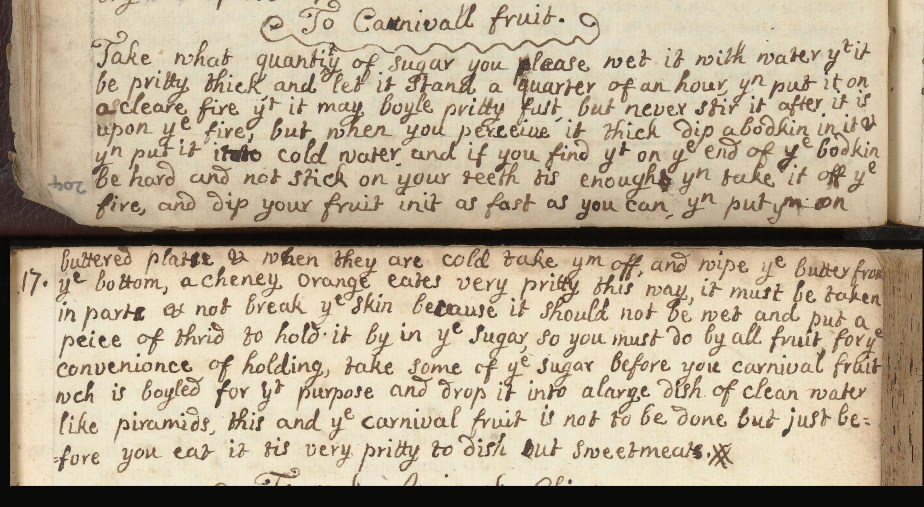 To Carnivall fruit.
Take what quantity of sugar you please wet it with water yt it
be pritty thick and let it stand a quarter of an hour, yn put it on
a cleare fire yt it may boyle pritty fast, but never stir it after it is
upon ye fire, but when you perceive it thick dip a bodkin in it &
yn put it into cold water and if you find yt on ye end of ye bodkin
be hard and not stick on your teeth tis enough yn take it off ye
fire, and dip your fruit init as fast as you can, yn put ym on
204
buttered plates & when they are cold take ym off, and wipe ye butter from
17. ye bottom, a cheney orange eates very pritty this way, it must be taken
in parts & not break ye skin because it should not be wet and put a
peice of thrid to hold it by in ye sugar, so you must do by all fruit for ye
convenionce of holding, take some of ye sugar before you carnival fruit
wch is boyled for yt purpose and drop it into a large dish of clean water
like piramids, this and ye carnival fruit is not to be done but just be=
=fore you eat it tis very pritty to dish out sweetmeats.